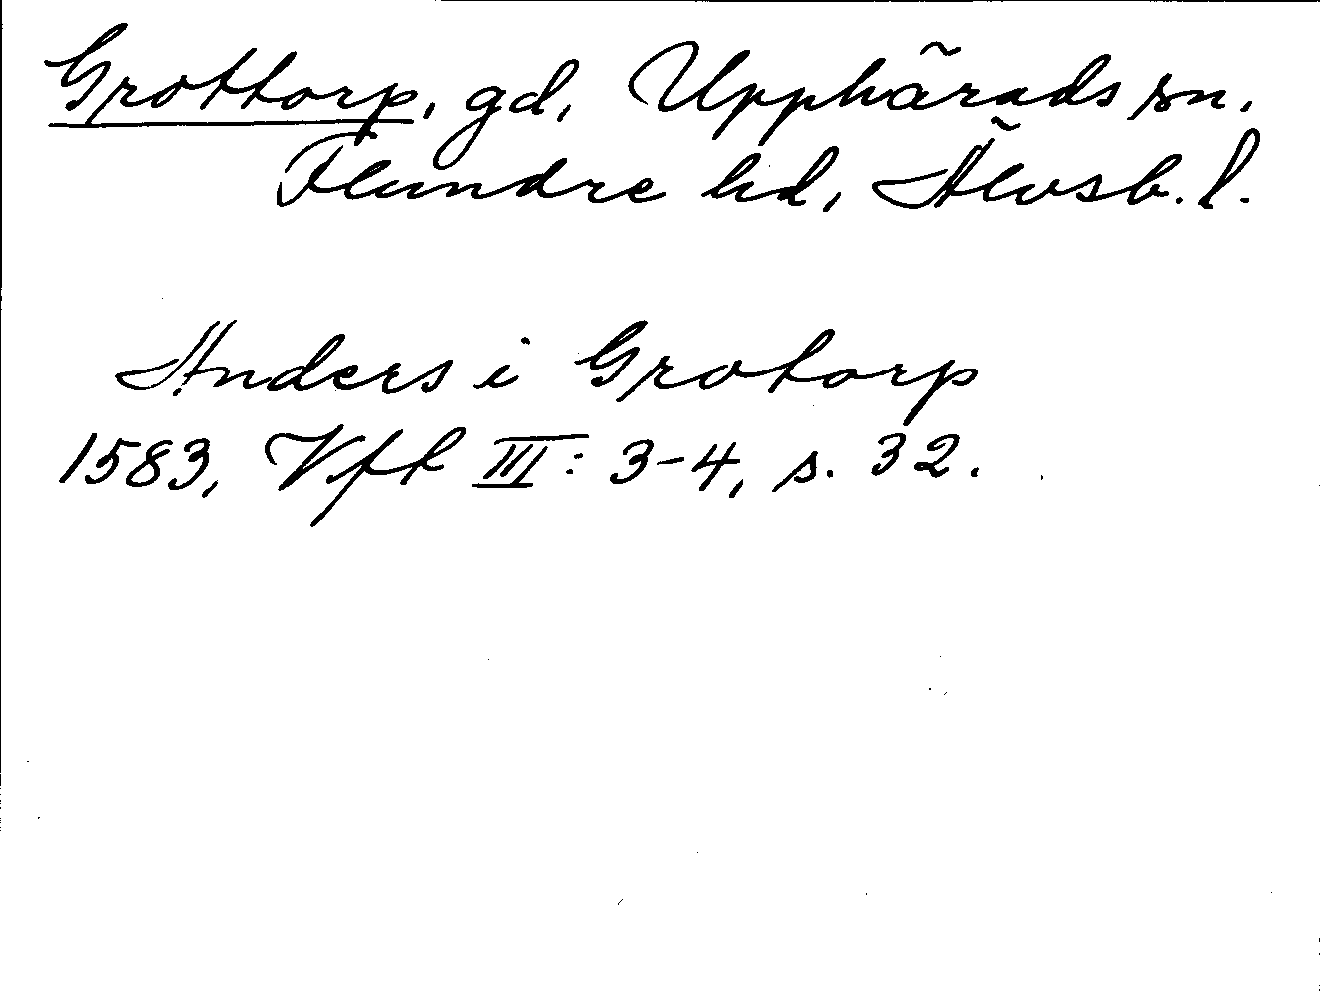 Grottorp, gd, Upphärads sn.
Flundre hd, Älvsb. l.
Anders i Grotorp
1583, Vfk III: 3-4, s. 32.